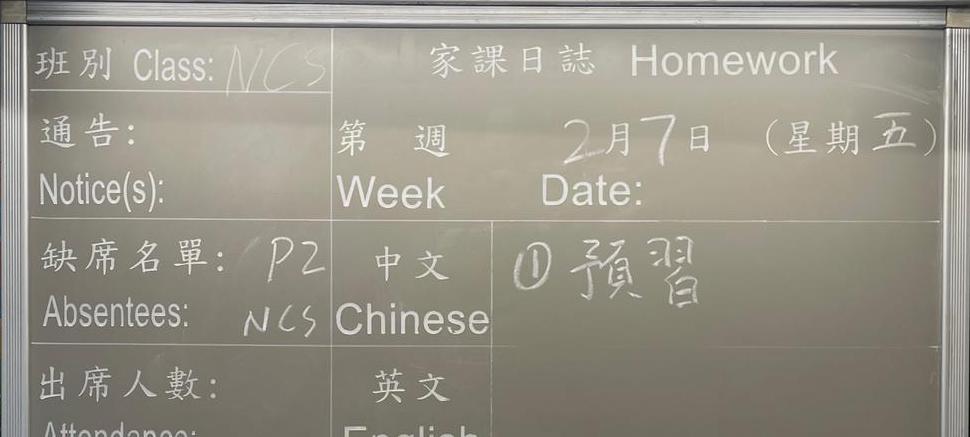 班別 Class: NCS
家課日誌 Homework
通告:
Notice(s):
第 週 2月7日 (星期五)
Week Date:
缺席名單: P2
Absentees: NCS
中文
Chinese
①預習
出席人數:
Attendance:
英文
English